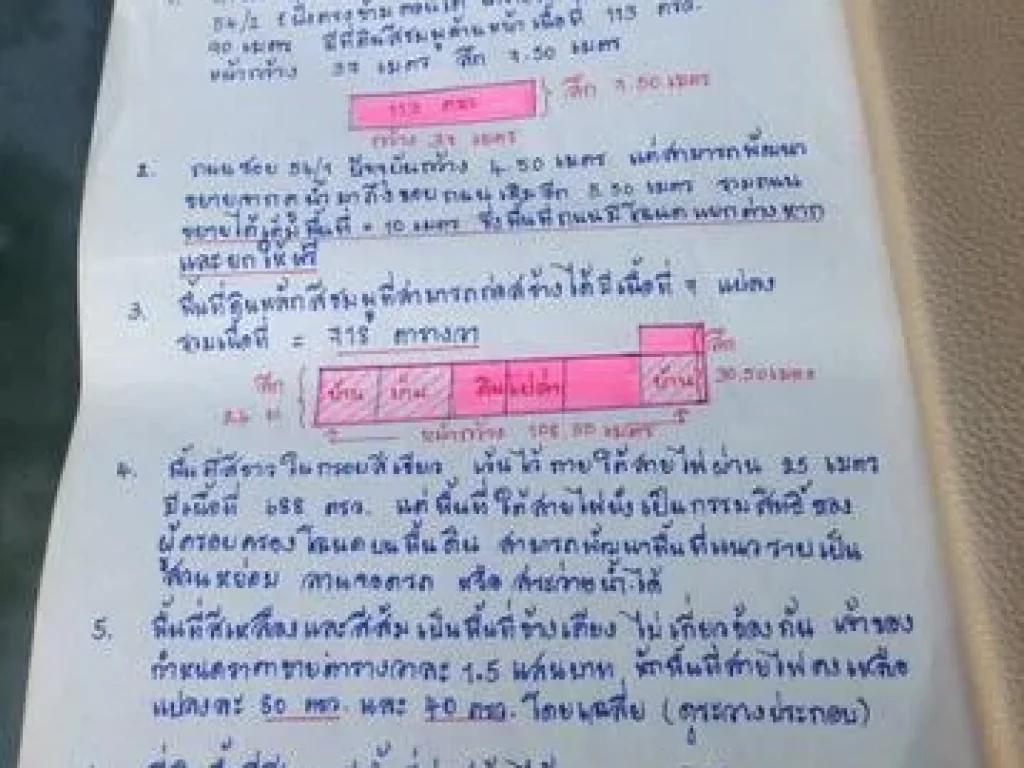 54/1 (ฝั่งตรงข้าม
90 เมตร มีที่ดินสีชมพูด้านหน้า เนื้อที่ 113 ตรว.
หน้ากว้าง 37 เมตร ลึก 7.50 เมตร
113 ตรว
ลึก 7.50 เมตร
กว้าง 37 เมตร
2. ถนนซอย 54/1 ปัจจุบันกว้าง 4.50 เมตร แต่สามารถพัฒนา
ขยายจาก มาถึงขอบถนนเดิมอีก 5.50 เมตร รวมถนน
ขยายได้เต็มพื้นที่ = 10 เมตร ซึ่งพื้นที่ถนนมีโฉนดแยกต่างหาก
และยกให้ฟรี
3. พื้นที่ดินหลักสีชมพูที่สามารถก่อสร้างได้มีเนื้อที่ 7 แปลง
รวมเนื้อที่ = 718 ตารางวา
ลึก
ลึก
บ้าน เก่า ดินเปล่า บ้าน
30.50 เมตร
24 ม
หน้ากว้าง เมตร
4. พื้นที่สีขาวในกรอบสีเขียว เว้นไว้ภายใต้สายไฟผ่าน 25 เมตร
มีเนื้อที่ 688 ตรว. แต่พื้นที่ใต้สายไฟยังเป็นกรรมสิทธิ์ของ
ผู้ครอบครองโฉนดบนพื้นดิน สามารถพัฒนาพื้นที่แนวราบเป็น
สวนหย่อม ลานจอดรถ หรือ สระว่ายน้ำได้
5. พื้นที่สีเหลืองและสีส้ม เป็นพื้นที่ข้างเคียง ไม่เกี่ยวข้องกัน เจ้าของ
กำหนดราคาขายตารางวาละ 1.5 แสนบาท หักพื้นที่สายไฟคงเหลือ
แปลงละ 50 ตรว. และ 40 ตรว. โดยเฉลี่ย (ดูระวางประกอบ)